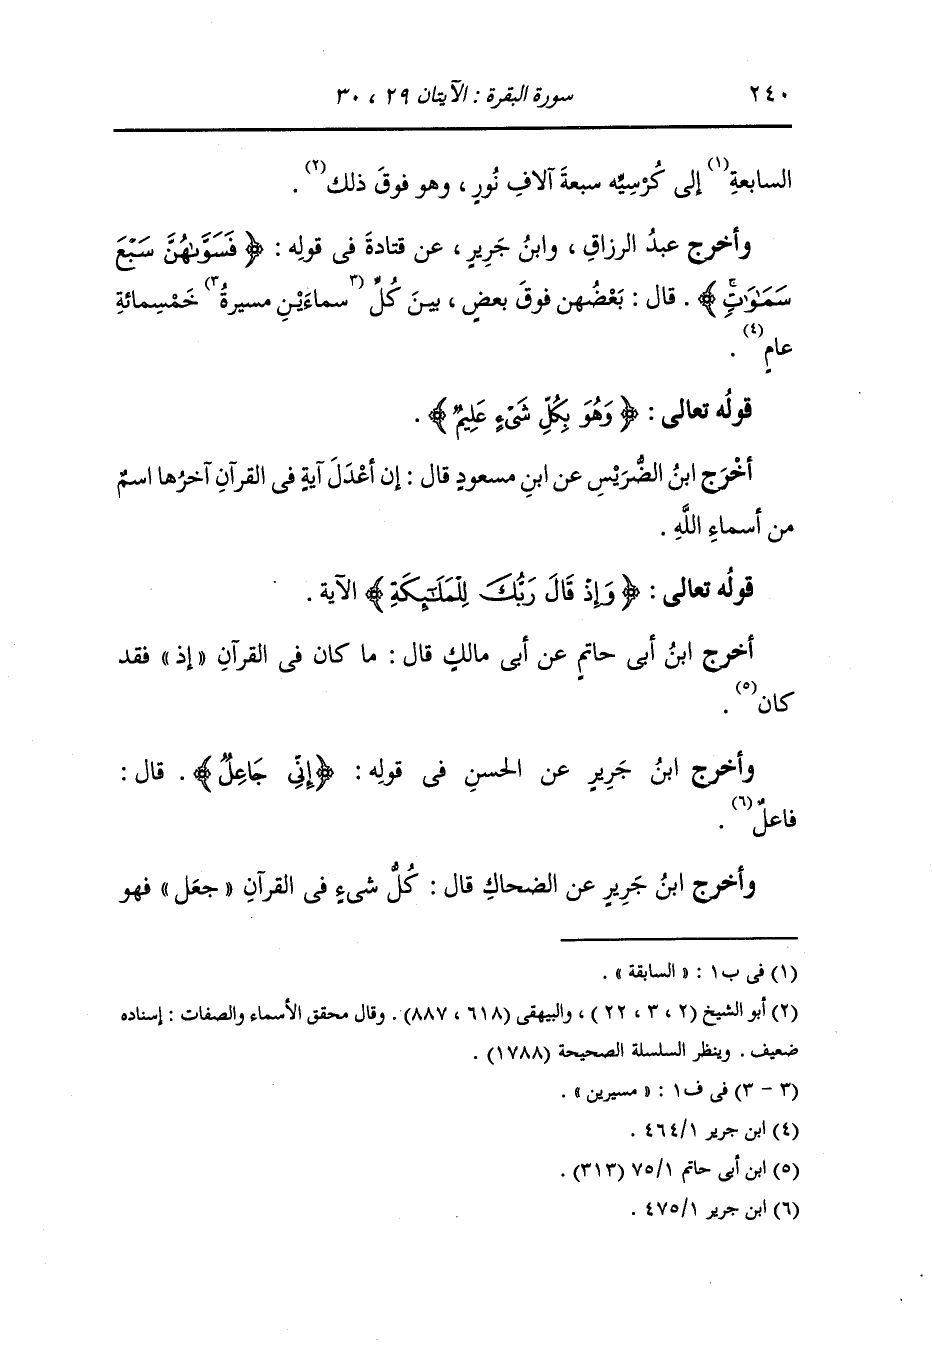 ٢٤٠ سورة البقرة : الآيتان ٢٩ ، ٣٠
السابعةِ(١) إلى كُرْسِيِّه سبعةَ آلافِ نُورٍ ، وهو فوقَ ذلك(٢) .
وأخرج عبدُ الرزاقِ ، وابنُ جَريرٍ ، عن قتادةَ فى قولِه : ﴿ فَسَوَّىٰهُنَّ سَبْعَ
سَمَٰوَٰتٍۚ ﴾ . قال : بَعْضُهن فوقَ بعضٍ ، بينَ كُلِّ (٣سماءَيْنِ مسيرةُ٣) خَمْسِمائةِ
عامٍ(٤) .
قولُه تعالى : ﴿ وَهُوَ بِكُلِّ شَىْءٍ عَلِيمٌ ﴾ .
أخْرَج ابنُ الضُّرَيْسِ عن ابنِ مسعودٍ قال : إن أعْدَلَ آيةٍ فى القرآنِ آخرُها اسمٌ
من أسماءِ اللَّهِ .
قولُه تعالى : ﴿ وَإِذْ قَالَ رَبُّكَ لِلْمَلَٰٓئِكَةِ ﴾ الآية .
أخرج ابنُ أبى حاتمٍ عن أبى مالكٍ قال : ما كان فى القرآنِ « إذ » فقد
كان(٥) .
وأخرج ابنُ جَرِيرٍ عن الحسنِ فى قولِه : ﴿إِنِّى جَاعِلٌ﴾ . قال :
فاعلٌ(٦) .
وأخرج ابنُ جَرِيرٍ عن الضحاكِ قال : كُلُّ شىءٍ فى القرآنِ « جعَل » فهو
(١) فى ب١ : « السابقة » .
(٢) أبو الشيخ (٢ ، ٣ ، ٢٢ ) ، والبيهقى (٦١٨ ، ٨٨٧) . وقال محقق الأسماء والصفات : إسناده
ضعيف . وينظر السلسلة الصحيحة (١٧٨٨) .
(٣ – ٣) فى ف١ : « مسيرين » .
(٤) ابن جرير ٤٦٤/١ .
(٥) ابن أبى حاتم ٧٥/١ (٣١٣) .
(٦) ابن جرير ٤٧٥/١ .